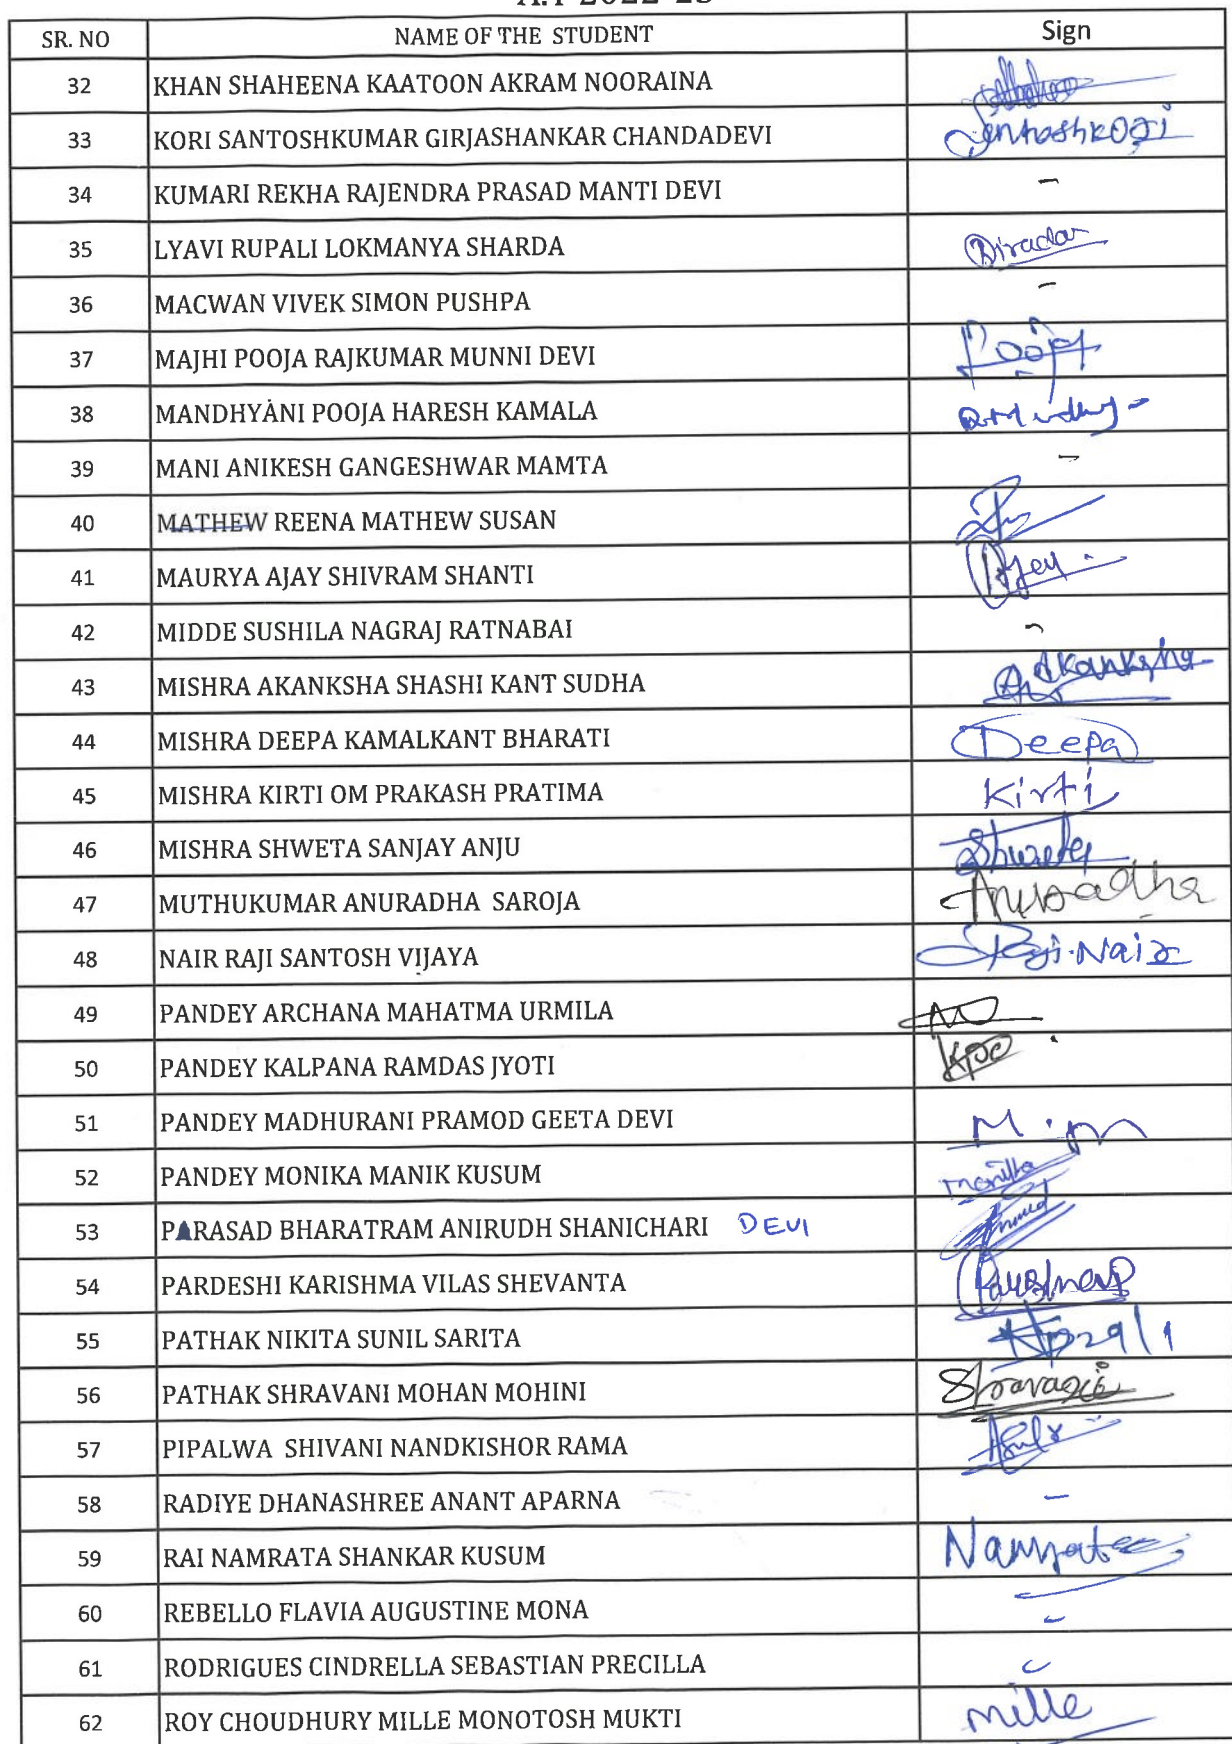 A.Y 2022-23
SR. NO NAME OF THE STUDENT Sign
32 KHAN SHAHEENA KAATOON AKRAM NOORAINA
33 KORI SANTOSHKUMAR GIRJASHANKAR CHANDADEVI Santoshkori
34 KUMARI REKHA RAJENDRA PRASAD MANTI DEVI -
35 LYAVI RUPALI LOKMANYA SHARDA Biradar
36 MACWAN VIVEK SIMON PUSHPA -
37 MAJHI POOJA RAJKUMAR MUNNI DEVI Pooja
38 MANDHYANI POOJA HARESH KAMALA
39 MANI ANIKESH GANGESHWAR MAMTA -
40 MATHEW REENA MATHEW SUSAN
41 MAURYA AJAY SHIVRAM SHANTI Ajay
42 MIDDE SUSHILA NAGRAJ RATNABAI -
43 MISHRA AKANKSHA SHASHI KANT SUDHA Akanksha
44 MISHRA DEEPA KAMALKANT BHARATI Deepa
45 MISHRA KIRTI OM PRAKASH PRATIMA Kirti
46 MISHRA SHWETA SANJAY ANJU Shweta
47 MUTHUKUMAR ANURADHA SAROJA Anuradha
48 NAIR RAJI SANTOSH VIJAYA Raji.Nair
49 PANDEY ARCHANA MAHATMA URMILA
50 PANDEY KALPANA RAMDAS JYOTI
51 PANDEY MADHURANI PRAMOD GEETA DEVI
52 PANDEY MONIKA MANIK KUSUM Monika
53 PARASAD BHARATRAM ANIRUDH SHANICHARI DEVI
54 PARDESHI KARISHMA VILAS SHEVANTA
55 PATHAK NIKITA SUNIL SARITA
56 PATHAK SHRAVANI MOHAN MOHINI Shravani
57 PIPALWA SHIVANI NANDKISHOR RAMA
58 RADIYE DHANASHREE ANANT APARNA -
59 RAI NAMRATA SHANKAR KUSUM Namrata
60 REBELLO FLAVIA AUGUSTINE MONA -
61 RODRIGUES CINDRELLA SEBASTIAN PRECILLA -
62 ROY CHOUDHURY MILLE MONOTOSH MUKTI Mille